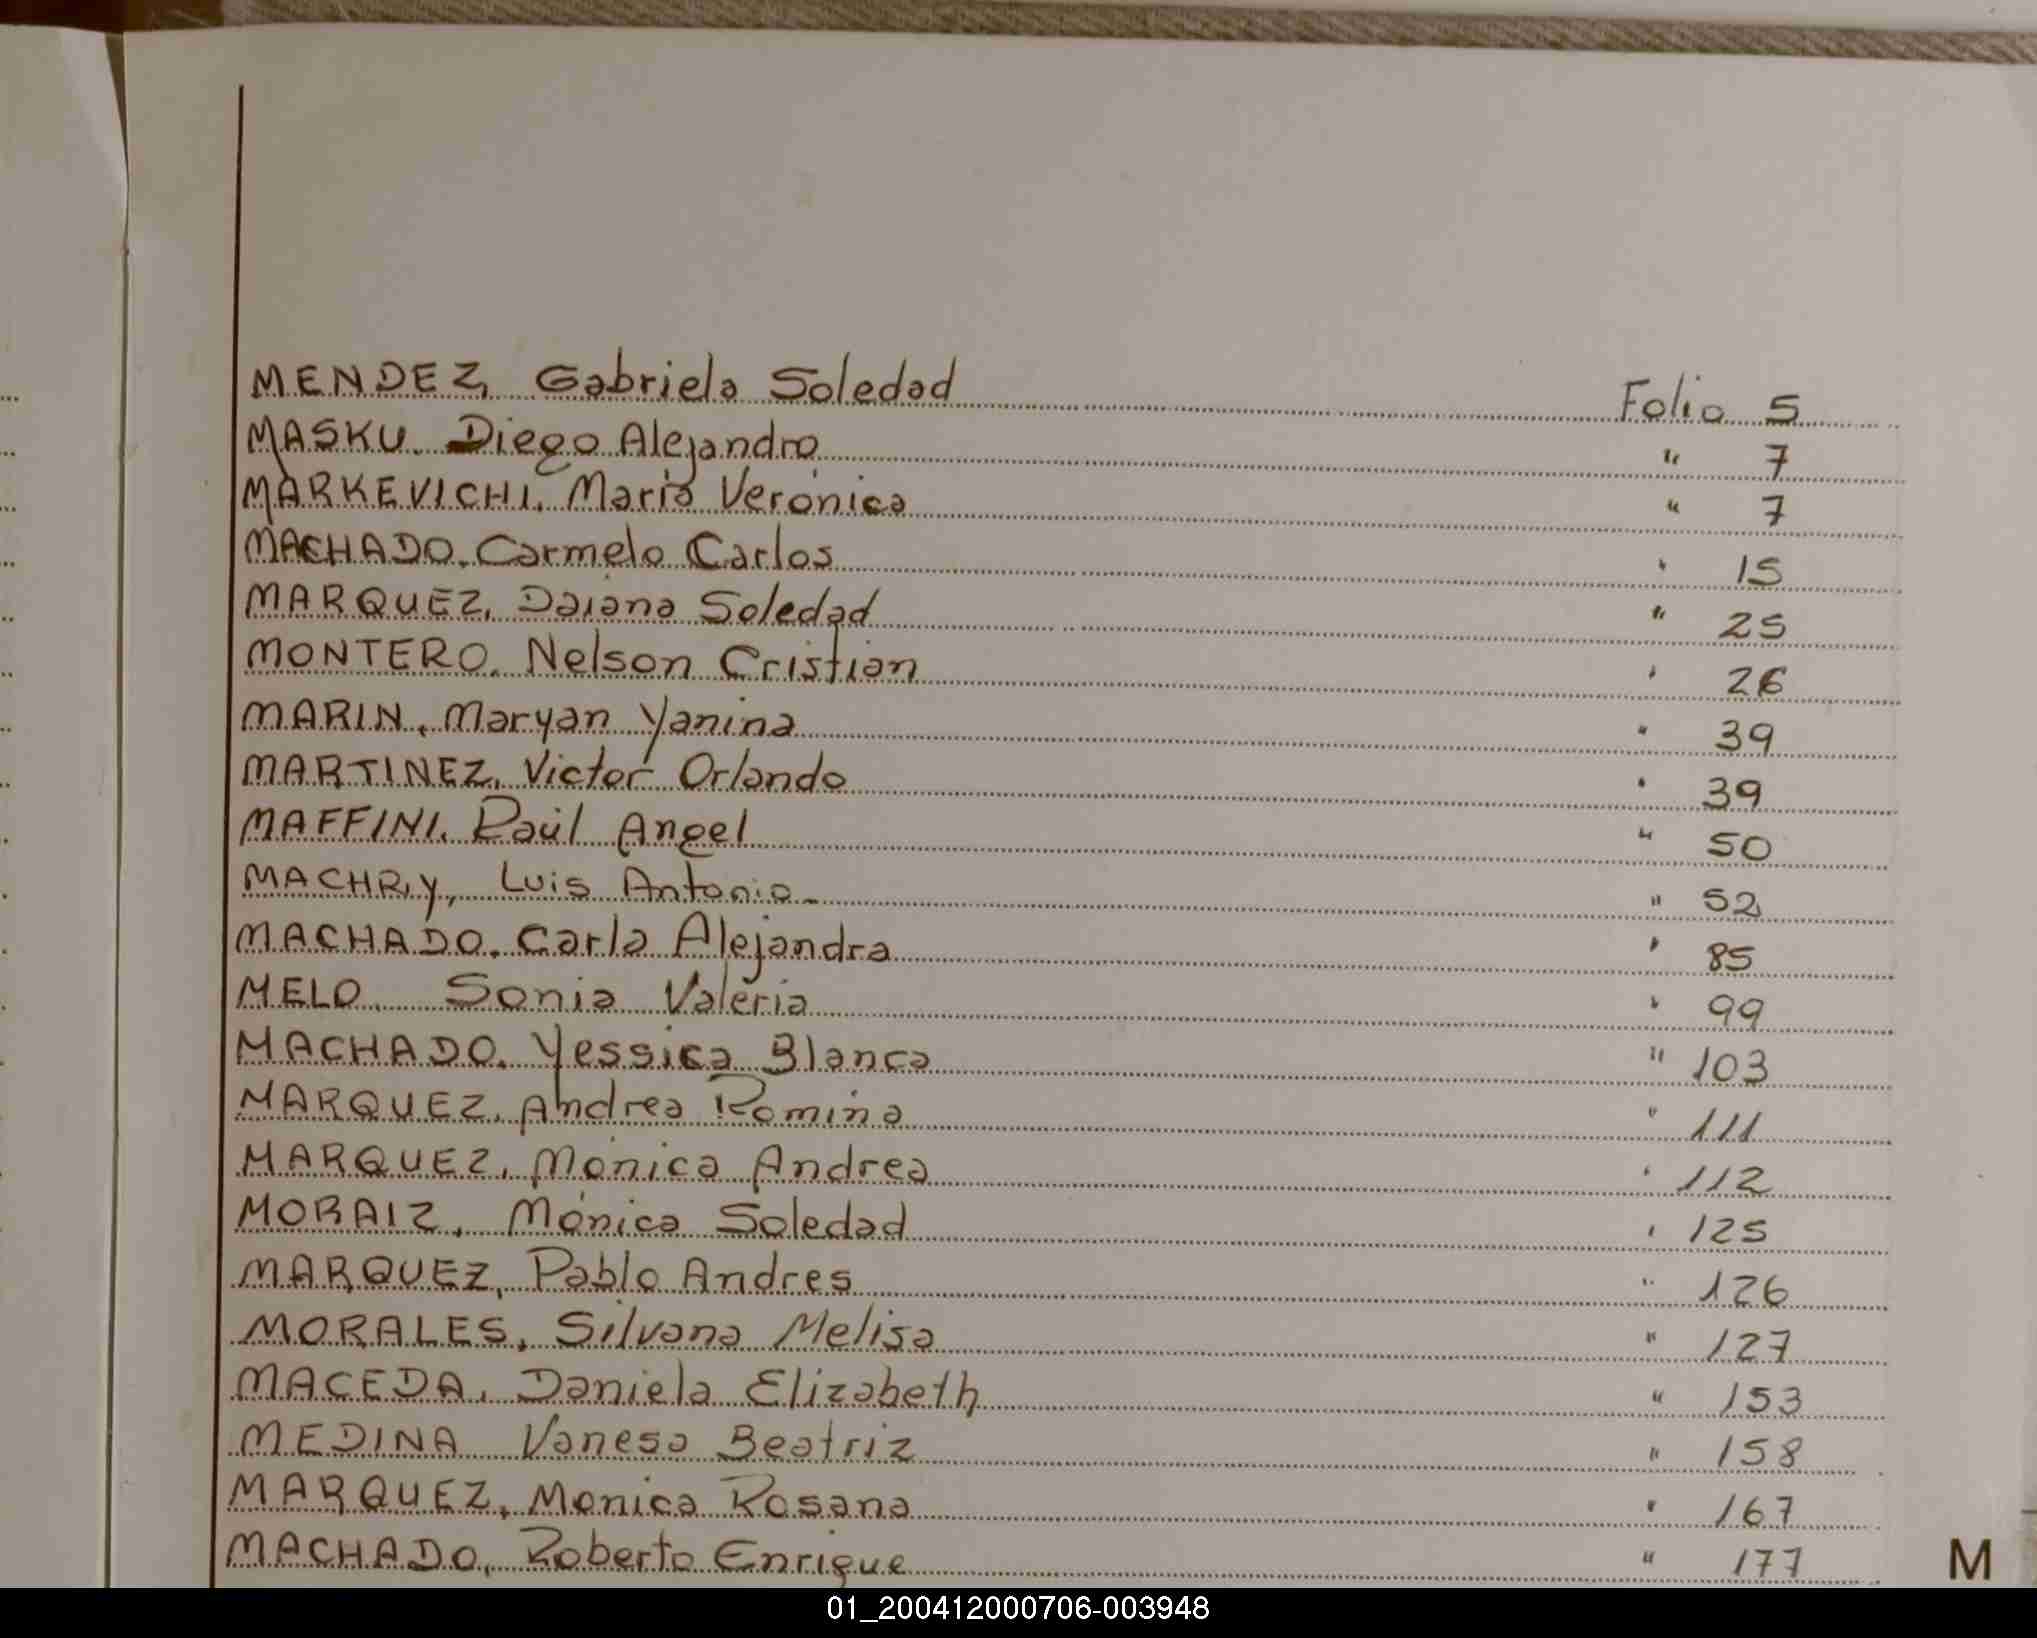 MENDEZ, Gabriela Soledad Folio 5
MASKU. Diego Alejandro " 7
MARKEVICHI. Maria Verónica " 7
MACHADO. Carmelo Carlos " 15
MARQUEZ. Daiana Soledad " 25
MONTERO. Nelson Cristian " 26
MARIN. Maryan Yanina " 39
MARTINEZ. Victor Orlando " 39
MAFFINI. Raúl Angel " 50
MACHRY, Luis Antonio " 52
MACHADO. Carla Alejandra " 85
MELO Sonia Valeria " 99
MACHADO. Yessica Blanca " 103
MARQUEZ. Andrea Romina " 111
MARQUEZ. Mónica Andrea " 112
MORAIZ, Mónica Soledad " 125
MARQUEZ, Pablo Andres " 126
MORALES, Silvana Melisa " 127
MACEDA. Daniela Elizabeth " 153
MEDINA Vanesa Beatriz " 158
MARQUEZ, Monica Rosana " 167
MACHADO, Roberto Enrique " 177
M
01_200412000706-003948